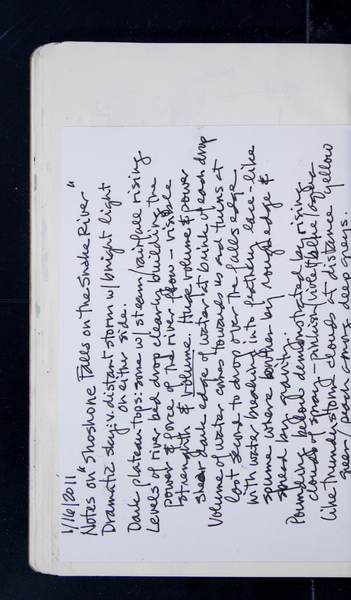 1/16/2011
Notes on "Shoshone Falls on the Snake River"
Dramatic sky: distant storm w/ bright light
on either side.
Dark plateau tops: some w/ steam/rainfall rising
Levels of river bed drop clearly building the
power & force of the river flow - visible
strength & volume. Huge volume & power
sheer dark edge of water at brink of each drop
Volume of water comes towards us and turns at
last second to drop over the falls edge
with water breaking into feathery lace-like
spume where another by rough edge &
spead by gravity.
Pounding below demonstrated by rising
clouds of spray - pinkish violet blue/
like thunder storm clouds at distance yellow
green/peach among deep greys.